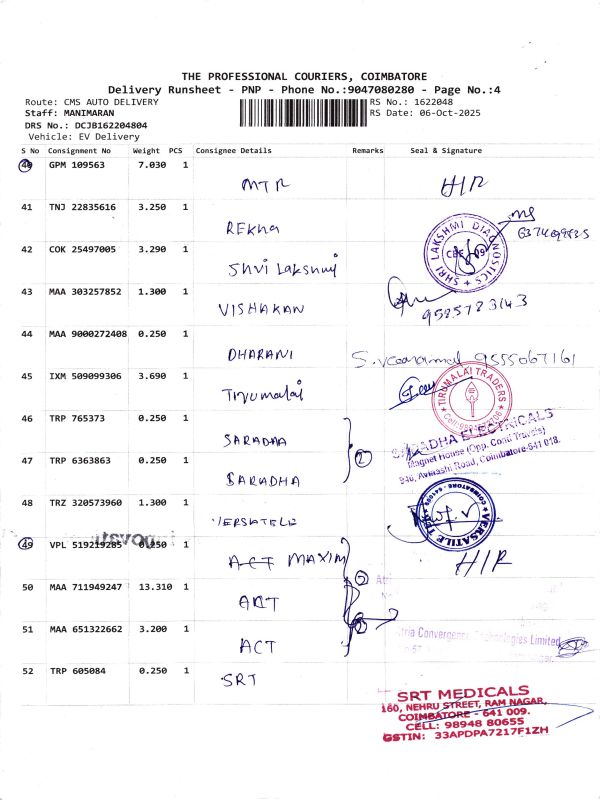 THE PROFESSIONAL COURIERS, COIMBATORE
Delivery Runsheet - PNP - Phone No.:9047080280 - Page No.:4
Route: CMS AUTO DELIVERY RS No.: 1622048
Staff: MANIMARAN RS Date: 06-Oct-2025
DRS No.: DCJB162204804
Vehicle: EV Delivery
S No Consignment No Weight PCS Consignee Details Remarks Seal & Signature
40 GPM 109563 7.030 1
MTR H/R
41 TNJ 22835616 3.250 1
REKHA
42 COK 25497005 3.290 1
SHRI LAKSHMI DIAGNOSTICS
Shri Lakshmi
43 MAA 303257852 1.300 1
VISHAKAN 9585783143
44 MAA 9000272408 0.250 1
DHARANI 9555067161
45 IXM 509099306 3.690 1
TIRUMALAI TRADERS
Tirumalai
46 TRP 765373 0.250 1
SARADHA
SARADHA ELECTRICALS
Magnet House (Opp. Conti Travels)
846, Avinashi Road, Coimbatore-641 018.
47 TRP 6363863 0.250 1
SARADHA
48 TRZ 320573960 1.300 1
VERSATILE
49 VPL 519219285 0.250 1
ACT MAXIM H/R
50 MAA 711949247 13.310 1
ACT
51 MAA 651322662 3.200 1
Atria Convergence Technologies Limited
ACT
52 TRP 605084 0.250 1
SRT
SRT MEDICALS
160, NEHRU STREET, RAM NAGAR,
COIMBATORE - 641 009.
CELL: 98948 80655
GSTIN: 33APDPA7217F1ZH